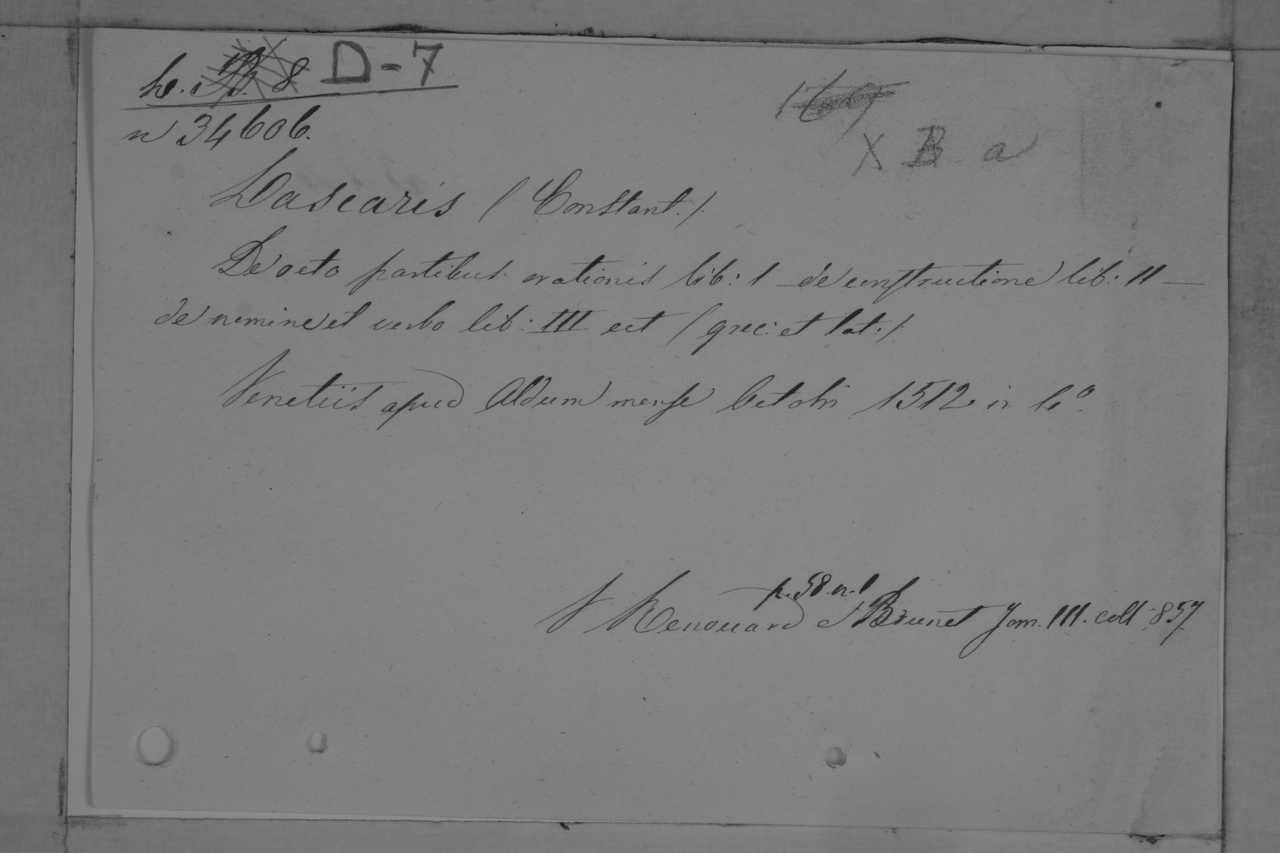 D-7
n 34606.
X B a
Lascaris (Constant.)
De octo partibus orationis lib: I — de constructione lib: II —
de nomine et verbo lib: III ect (grec: et lat:)
Venetiis apud Aldum mense Octobr 1512 in 4º.
p. 58. n. 1
V Renouard et Brunet Tom. III. coll 857